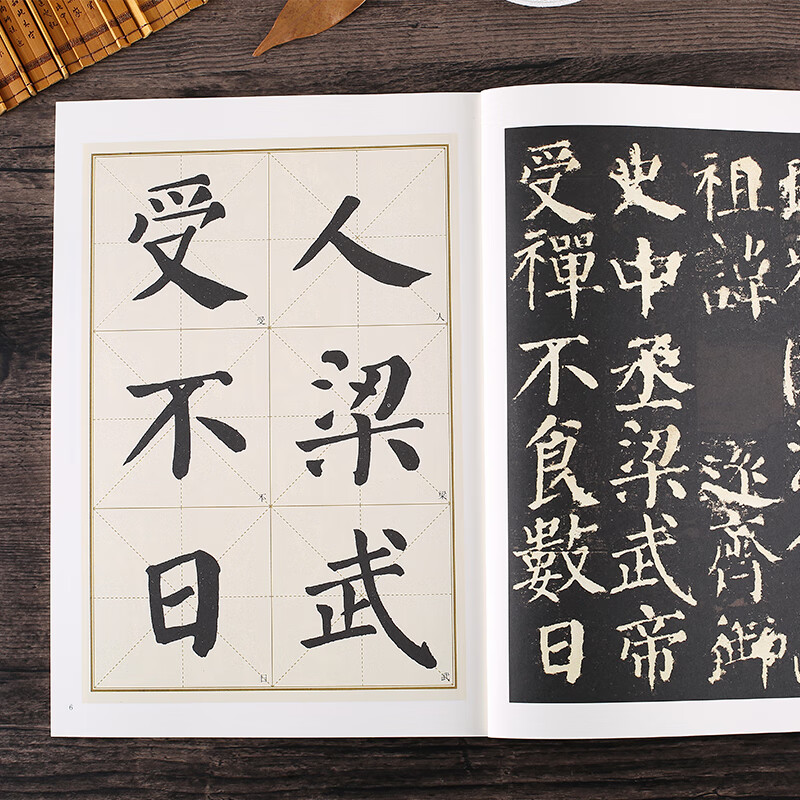 人梁武
人
梁
武
受不日
受
不
日
6
祖諱 遠齊御
史中丞梁武帝
受禪不食數日